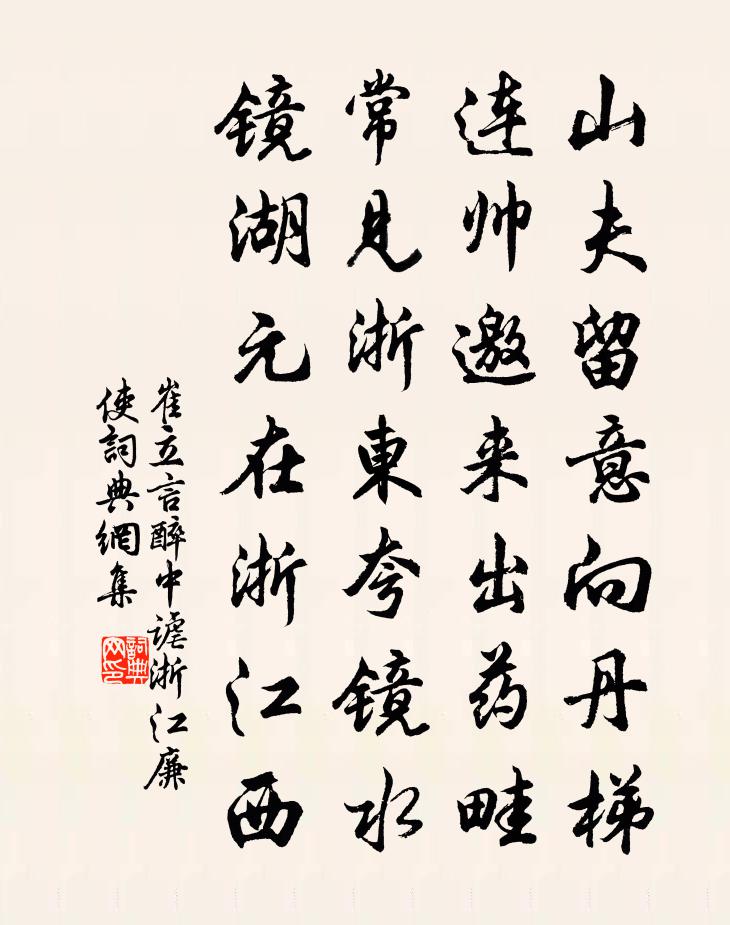 山夫留意向丹梯
连帅邀来出药畦
常见浙東夸镜水
镜湖元在浙江西
崔立言醉中謔浙江廉
使詞典網集
詞典网印